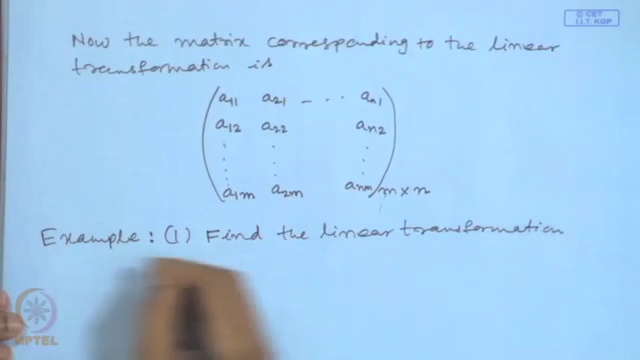 © CET
I.I.T. KGP
Now the matrix corresponding to the linear
transformation is
a11 a21 - . . . an1
a12 a22 an2
⋮ ⋮ ⋮
a1m a2m anm m × n
Example : (1) Find the linear transformation
NPTEL